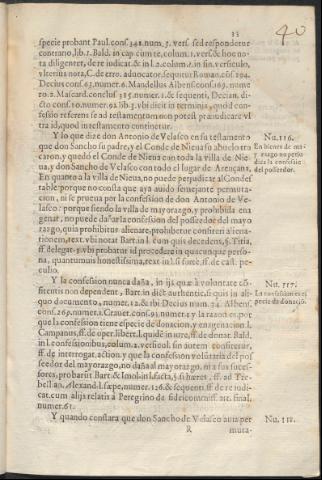 33
40
specie probant Paul. cons. 341. num. 5. vers. sed respondetur
contrario, lib. 1. Bald. in cap. cum te, colum. 1. vers. & hoc no-
ta diligenter, de re iudicat. & in l. 2. colum. 2. in fin. versiculo,
vlterius nota, C. de erro. aduocator. sequitur Roman. cons. 194.
Decius cons. 63. numer. 6. Mandellus Albens. cons. 169. nume
ro 2. Mascard. conclus. 355. numer. 1. & sequenti, Decian. di-
cto cons. 10. numer. 92. lib. 3. vbi dicit in terminis, quòd con-
fessio referens se ad testamentum non potest præiudicare vl
tra id, quod in testamento continetur.
Y lo que dize don Antonio de Velasco en su testamento
que don Sancho su padre, y el Conde de Nieua su abuelo tro
caron, y quedò el Conde de Nieua con toda la villa de Nie
ua, y don Sancho de Velasco con todo el lugar de Arençana.
En quanto a la villa de Nieua, no puede perjudicar al Condes
table porque no consta que aya auido semejante permuta-
cion, ni se prueua por la confession de don Antonio de Ve-
lasco: porque siendo la villa de mayorazgo, y prohibida ena
genar, no puede dañar la confession del posseedor del mayo
razgo, quia prohibitus alienare, prohibetur consiteri aliena-
tionem, text. vbi notat Bart. in l. cum quis decedens, §. Titia,
ff. de legat. 3. vbi probatur id procedere in quacunque perso-
na, quantumuis honestissima, text. in l. si fuerit, ff. de cast. pe-
culio.
Y la confession nunca daña, in ijs quæ à voluntate con-
fitentis non dependent, Bart. in dict. authentic. si quis in ali-
quo documento, numer. 12. & ibi Decius num. 34. Albens.
cons. 269. numer. 1. Crauet. cons. 91. numer. 4. y la razon es por
que la confession tiene especie de donacion, y enagenacion l.
Campanus, ff. de oper. libert. l. quidẽ in iure, ff. de donat. Bald.
in l. confessionibus, colum. 2. versicul. sin autem confitetur,
ff. de interrogat. action. y que la confession voluntaria del pos
seedor del mayorazgo, no daña al mayorazgo, ni a sus suces-
sores, probarũt Bart. & Imol. in l. facta, §. si hæres, ff. ad Tre-
bellian. Alexand. l. sæpe, numer. 126. & sequenti. ff. de re iudi-
cat. cum alijs relatis à Peregrino de fideicommiss. art. final.
numer. 61.
Y quando constara que don Sancho de Velasco auia per
R
muta-
Nu. 116.
En bienes de ma-
y razgo no perju
dica la confessiõ
del posseedor.
Nu. 117.
La confession es es
pecie de donaciõ.
Nu. 118.